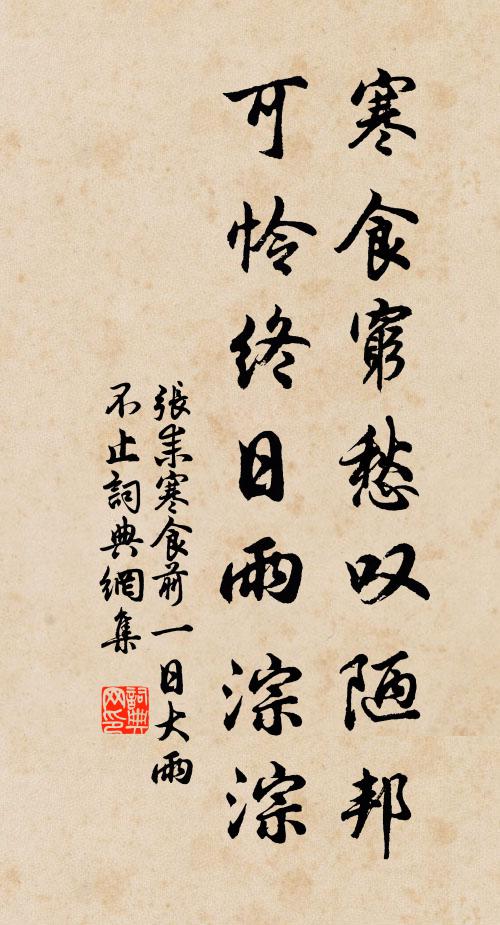 寒食窮愁叹陋邦
可怜終日雨淙淙
張耒寒食前一日大雨
不止詞典網集
詞典网印